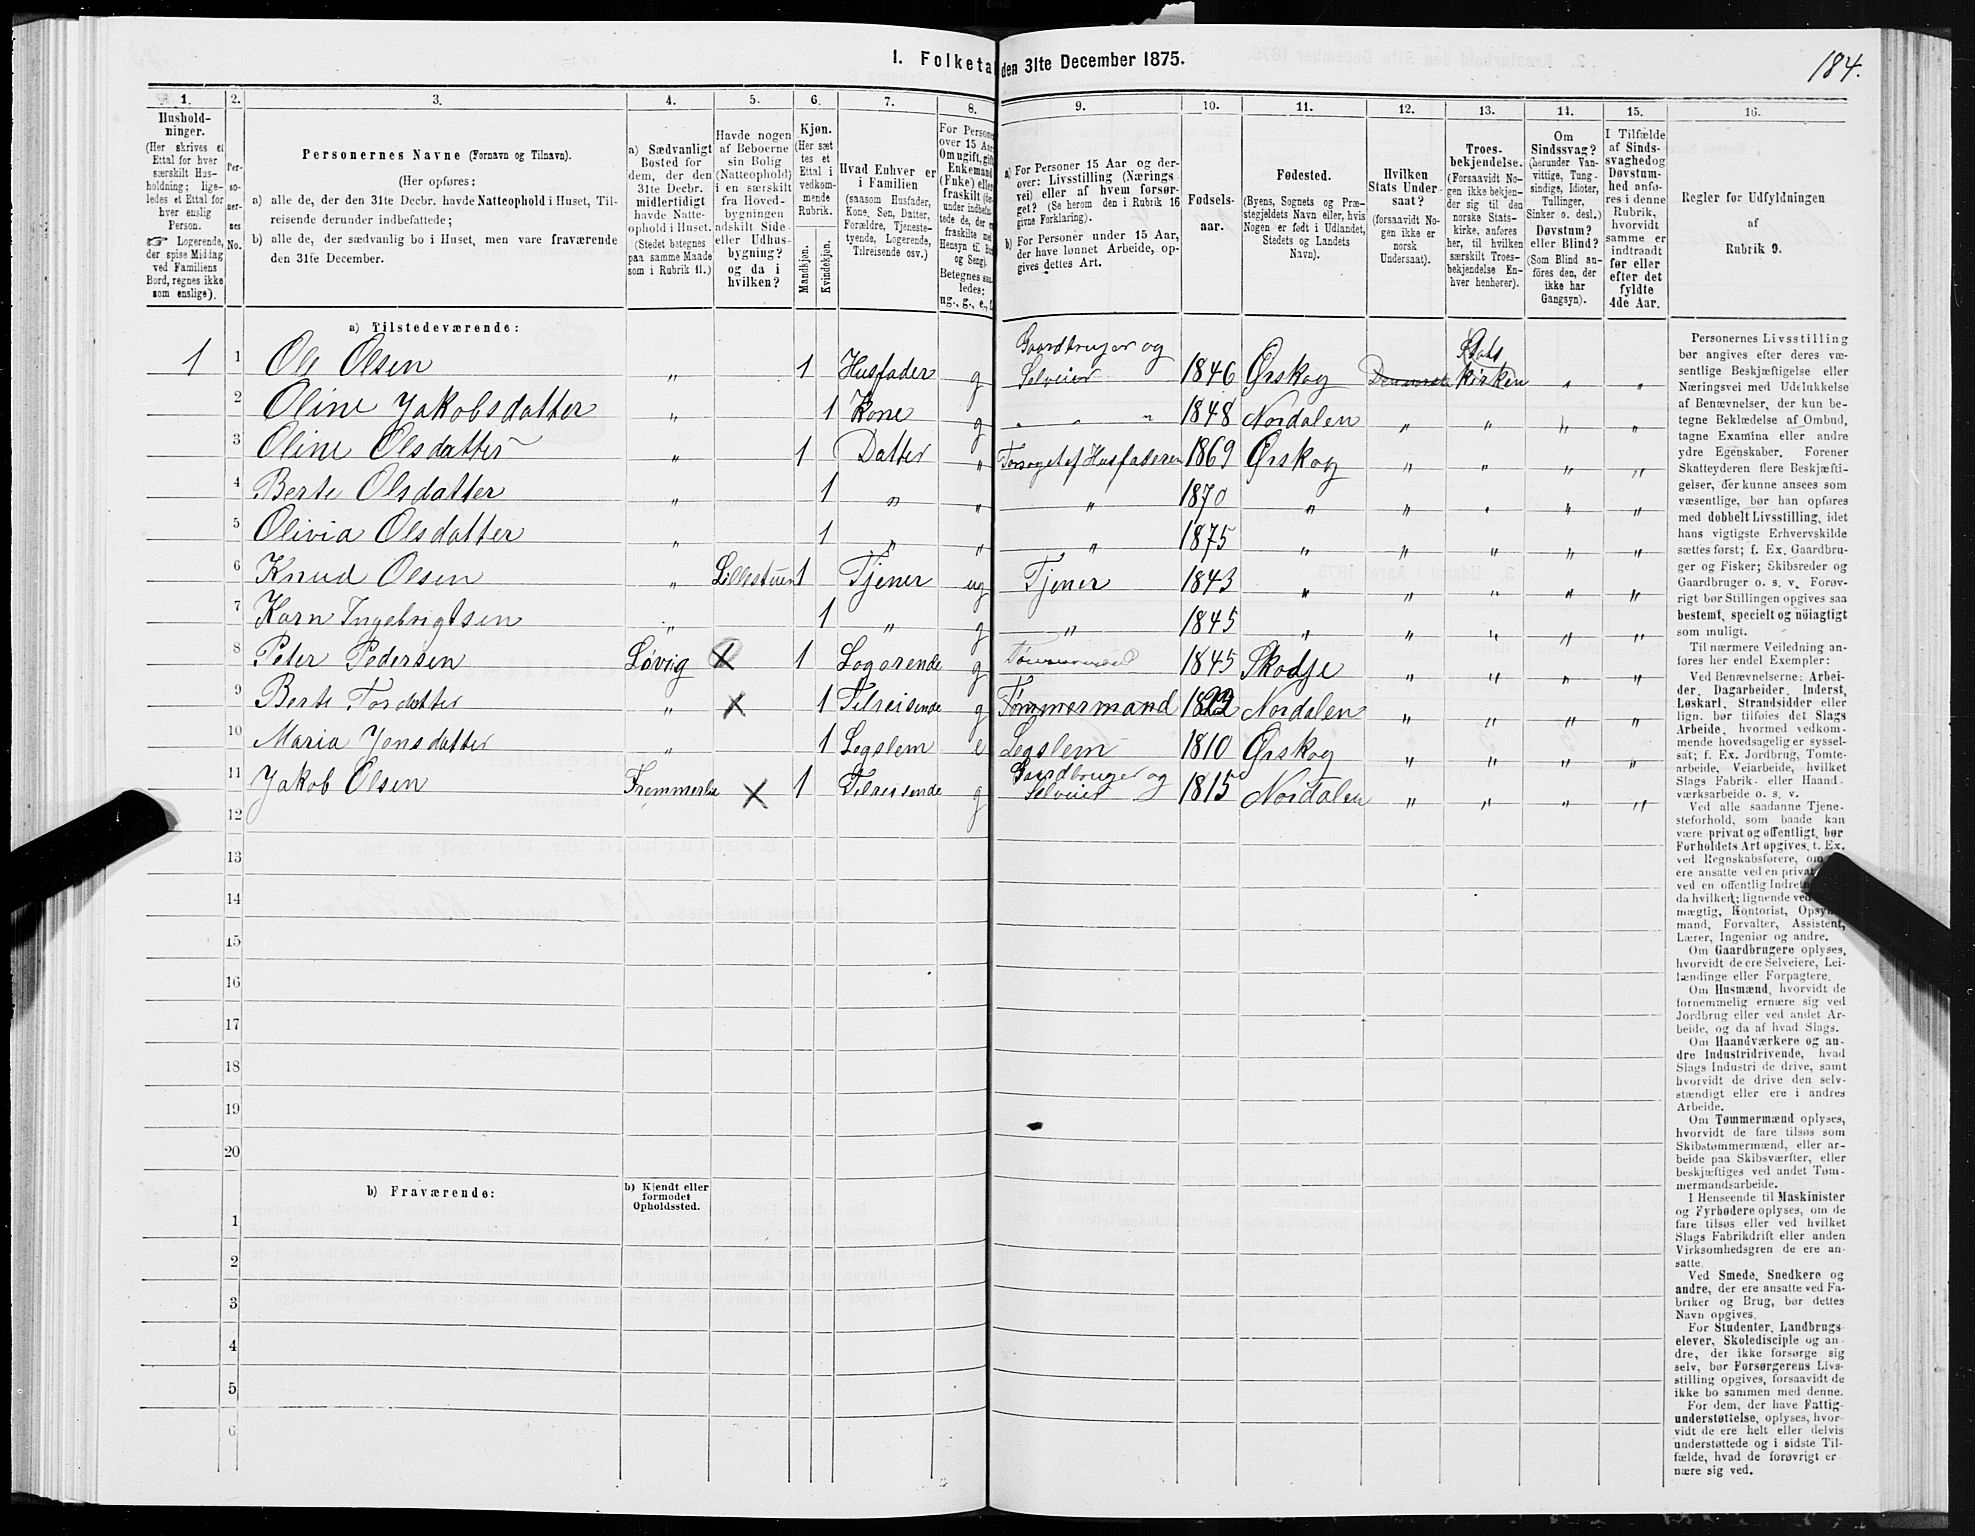 1. Folketa den 31te December 1875.
184.
1. 2. 3. 4. 5. 6. 7. 8. 9. 10. 11. 12. 13. 14. 15. 16.
Hushold-
ninger.
(Her skrives et
Ettal for hver
særskilt Hus-
holdning; lige-
ledes et Ettal for
hver enslig
Person.
☞ Logerende,
der spise Middag
ved Familiens
Bord, regnes ikke
som enslige).
Per-
so-
ner-
nes
No.
Personernes Navne (Fornavn og Tilnavn).
(Her opføres:
a) alle de, der den 31te Decbr. havde Natteophold i Huset, Til-
reisende derunder indbefattede;
b) alle de, der sædvanlig bo i Huset, men vare fraværende
den 31te December.
a) Sædvanligt
Bosted for
dem, der den
31te Decbr.
midlertidigt
havde Natte-
ophold i Huset.
(Stedet betegnes
paa samme Maade
som i Rubrik 11.)
Havde nogen
af Beboerne
sin Bolig
(Natteophold)
i en særskilt
fra Hoved-
bygningen
adskilt Side-
eller Udhus-
bygning?
og da i
hvilken?
Kjøn.
(Her sæt
tes et
Ettal i
vedkom-
mende
Rubrik.
Mandkjøn.
Kvindekjøn.
Hvad Enhver er
i Familien
(saasom Husfader,
Kone, Søn, Datter,
Forældre, Tjeneste-
tyende, Logerende,
Tilreisende osv.)
For Persone
over 15 Aar
Om ugift, gift
Enkemand
(Enke) elle
fraskilt
under indbefat-
tede de, der e
fraskilte
Hensyn til B
og Seng).
Betegnes saa
ledes:
ug., g., e., f.
a) For Personer 15 Aar og der-
over: Livsstilling (Nærings
vei) eller af hvem forsør-
get? (Se herom den i Rubrik 16
givne Forklaring).
b) For Personer under 15 Aar,
der have lønnet Arbeide, op-
gives dettes Art.
Fødsels-
aar.
Fødested.
(Byens, Sognets og Præ-
stegjeldets Navn eller, hvis
Nogen er født i Udlandet,
Stedets og Landets
Navn).
Hvilken
Stats Under-
saat?
(forsaavidt No-
gen ikke er
norsk
Undersaat).
Troes-
bekjendelse.
(Forsaavidt No-
gen ikke bekjen-
der sig til den
norske Stats-
kirke, anføres
her, til hvilken
særskilt Troes-
bekjendelse En-
hver henhører).
Om
Sindssvag?
(herunder Van-
vittige, Tung-
sindige, Idioter,
Tullinger,
Sinker o. desl.)
Døvstum?
eller Blind?
(Som Blind an-
føres den, der
ikke har
Gangsyn).
I Tilfælde
af Sinds-
svaghedog
Døvstum-
hed anfø-
res i denne
Rubrik,
hvorvidt
samme er
indtraadt
før eller
efter det
fyldte
4de Aar.
Regler for Udfyldningen
af
Rubrik 9.
a) Tilstedeværende:
1 1 Ole Olsen " 1 Husfader g Gaardbruger og Selveier 1846 Ørskog Statskirken " "
2 Oline Jakobsdatter " 1 Kone g " " " 1848 Nordalen " " " "
3 Oline Olsdatter " 1 Datter " Forsøget af Husfaderen 1869 Ørskog " " " "
4 Berte Olsdatter " 1 " " " 1870 " " " " "
5 Olivia Olsdatter " 1 " " " 1875 " " " " "
6 Knud Olsen " Lillestuen 1 Tjener ug Tjener 1843 " " " " "
7 Karn Ingebrigtsen " 1 " g " 1845 " " " " "
8 Peter Pedersen Løvig X 1 Logerende g Tømmermand 1845 Skodje " " " "
9 Berte Tordatter " X 1 Tilreisende g Tømmermand Nordalen " " " "
10 Maria Jensdatter " 1 Legslem e Legslem 1810 Ørskog " " " "
11 Jakob Olsen X 1 Tilreisende g Gaardbruger og Selveier 1815 Nordalen " " " "
12
13
14
15
16
17
18
19
20
b) Fraværende:
b) Kjendt eller
formodet
Opholdssted.
1
2
3
4
5
6
Personernes Livsstilling
bør angives efter deres væ-
sentlige Beskjæftigelse eller
Næringsvei med Udelukkelse
af Benævnelser, der kun be-
tegne Beklædelse af Ombud,
tagne Examina eller andre
ydre Egenskaber. Forener
Skatteyderen flere Beskjæfti-
gelser, der kunne ansees som
væsentlige, bør han opføres
med dobbelt Livsstilling, idet
hans vigtigste Erhvervskilde
sættes først; f. Ex. Gaardbru-
ger og Fisker; Skibsreder og
Gaardbruger o. s. v. Forøv-
rigt bør Stillingen opgives saa
bestemt, specielt og nöiagtigt
som muligt.
Til nærmere Veiledning an-
føres her endel Exempler:
Ved Benævnelserne: Arbei-
der, Dagarbeider, Inderst,
Løskarl, Strandsidder eller
lign. bør tilføies det Slags
Arbeide, hvormed vedkom-
mende hovedsagelig er syssel-
sat; f. Ex. Jordbrug, Tomte-
arbeide, Veiarbeide, hvilket
Slags Fabrik- eller Haand-
værksarbeide o. s. v.
Ved alle saadanne Tjene-
steforhold, som baade kan
være privat og offentligt, bør
Forholdets Art opgives, t. Ex.
ved Regnskabsførere, om
ere ansatte ved en privat
ved en offentlig Indret
da hvilken; lignende ved
mægtig, Kontorist, Opsyns
mand, Forvalter, Assistent,
Lærer, Ingeniør og andre.
Om Gaardbrugere oplyses,
hvorvidt de ere Selveiere, Lei-
lændinge eller Forpagtere.
Om Husmænd, hvorvidt de
fornemmelig ernære sig ved
Jordbrug eller ved andet Ar-
beide, og da af hvad Slags.
Om Haandværkere og an-
dre Industridrivende, hvad
Slags Industri de drive, samt
hvorvidt de drive den selv-
stændigt eller ere i andres
Arbeide.
Om Tømmermænd oplyses,
hvorvidt de fare tilsøs som
Skibstømmermænd, eller ar-
beide paa Skibsværfter, eller
beskjæftiges ved andet Tøm-
mermandsarbeide.
I Henseende til Maskinister
og Fyrbødere oplyses, om de
fare tilsøs eller ved hvilket
Slags Fabrikdrift eller anden
Virksomhedsgren de ere an-
satte.
Ved Smede, Snedkere og
andre, der ere ansatte ved Fa-
briker og Brug, bør dettes
Navn opgives.
For Studenter, Landbrugs-
elever, Skoledisciple og an-
dre, der ikke forsørge sig
selv, bør Forsørgerens Livs-
stilling opgives, forsaavidt de
ikke bo sammen med denne.
For dem, der have Fattig-
understøttelse, oplyses, hvor-
vidt de ere helt eller delvis
understøttede og i sidste Til-
fælde, hvad de forøvrigt er-
nære sig ved.